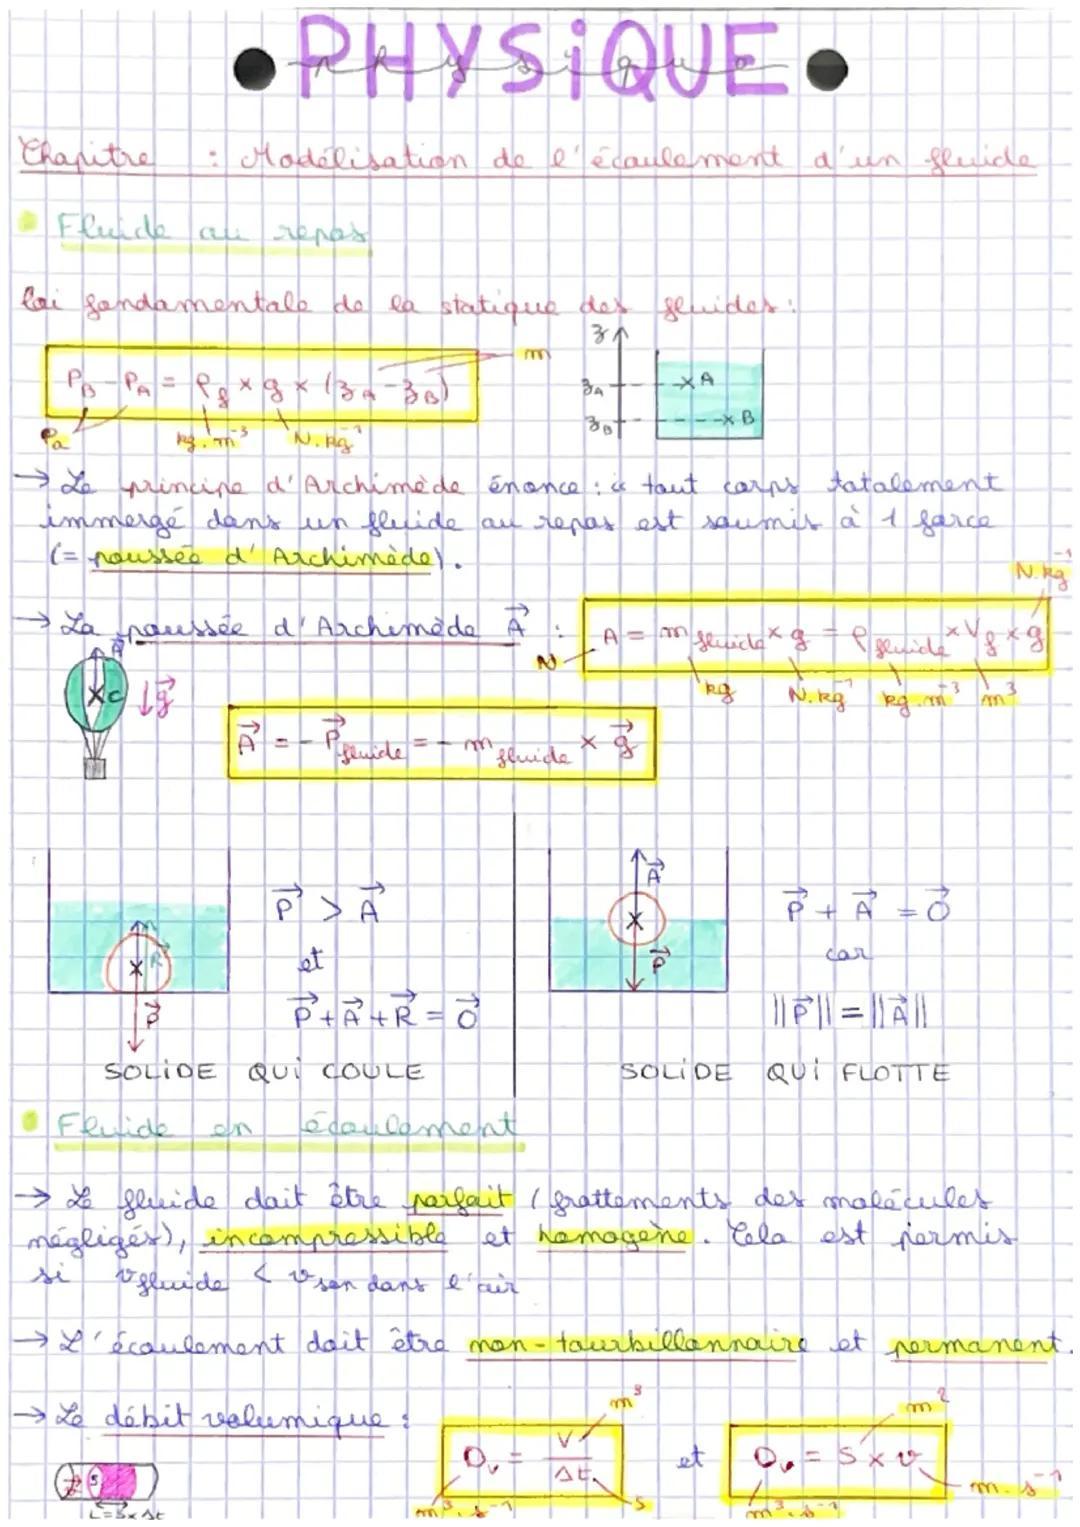 • PHYSiQUE •
Physique
Chapitre : Modélisation de l'écoulement d'un fluide
Fluide au repos
loi fondamentale de la statique des fluides :
P_B - P_A = ρ_f × g × (z_A - z_B)
m
Pa
kg.m⁻³
N.kg⁻¹
z
z_A
z_B
× A
× B
→ Le principe d'Archimède énonce : « tout corps totalement
immergé dans un fluide au repos est soumis à 1 force
(= poussée d'Archimède).
→ La poussée d'Archimède A⃗ :
A = m fluide × g = ρ fluide × V_f × g
N.kg⁻¹
N
kg
N.kg⁻¹
kg.m⁻³
m³
A⃗
C
g⃗
A⃗ = - P⃗ fluide = - m fluide × g⃗
P⃗ > A⃗
et
P⃗ + A⃗ + R⃗ = 0⃗
R⃗
P⃗
SOLiDE QUi COULE
A⃗
P⃗
P⃗ + A⃗ = 0⃗
car
||P⃗|| = ||A⃗||
SOLiDE QUi FLOTTE
Fluide en écoulement
→ Le fluide doit être parfait (frottements des molécules
négligés), incompressible et homogène. Cela est permis
si v fluide < v son dans l'air
→ L'écoulement doit être non-tourbillonnaire et permanent.
→ Le débit volumique :
D_v = V / Δt
m³
m³.s⁻¹
s
et
D_v = S × v
m²
m³.s⁻¹
m.s⁻¹
S